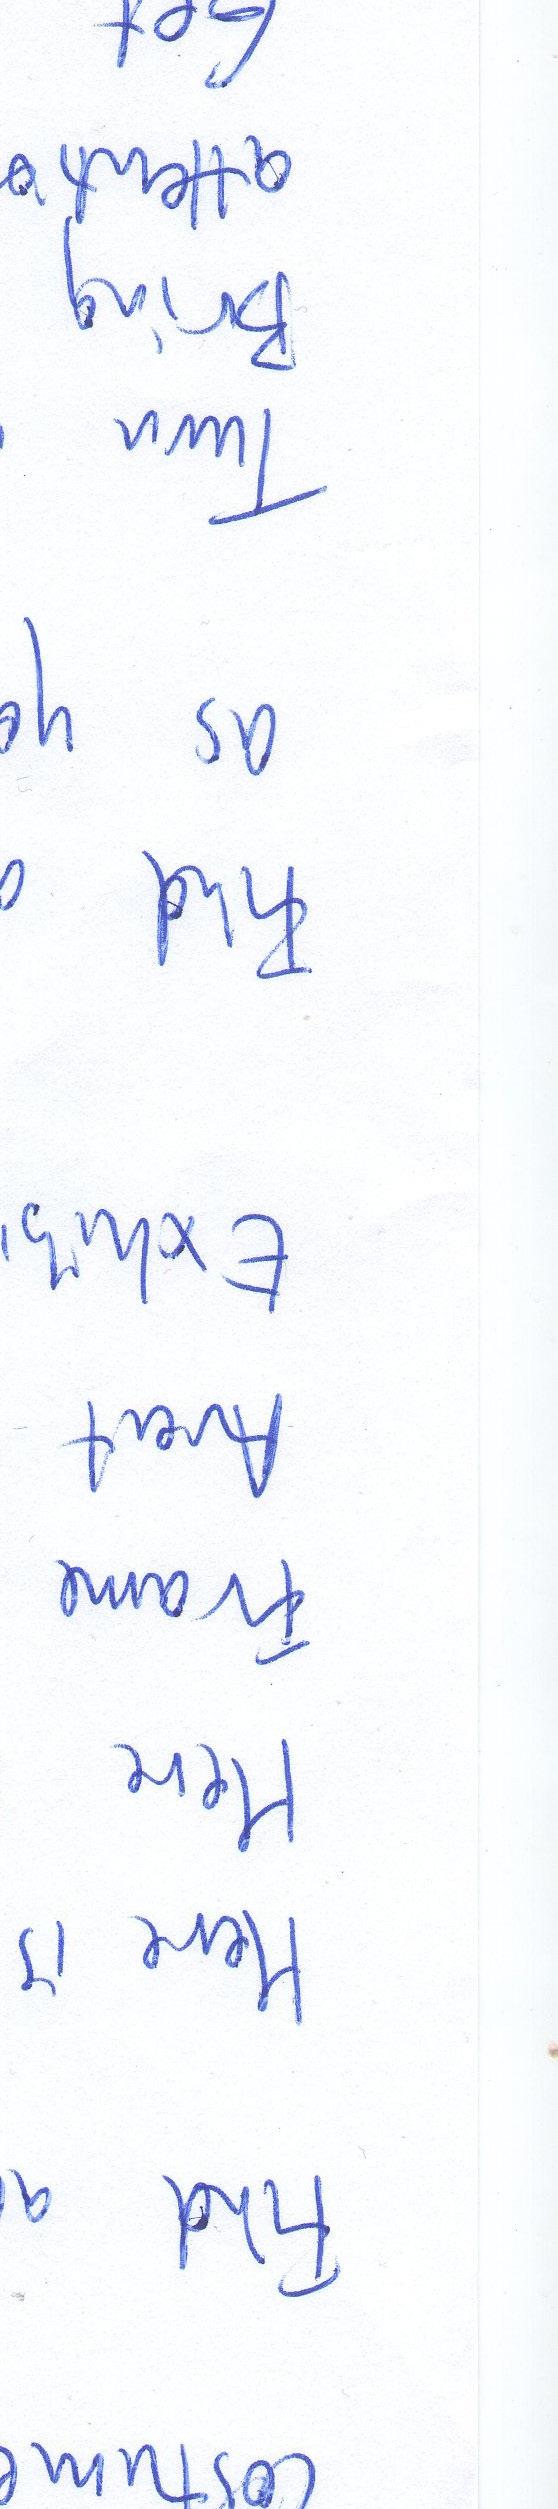 Costume
Find a
Here is
Here
Frame
Avert
Exhibi
Find a
as yo
Turn
Bring
attentio
Get